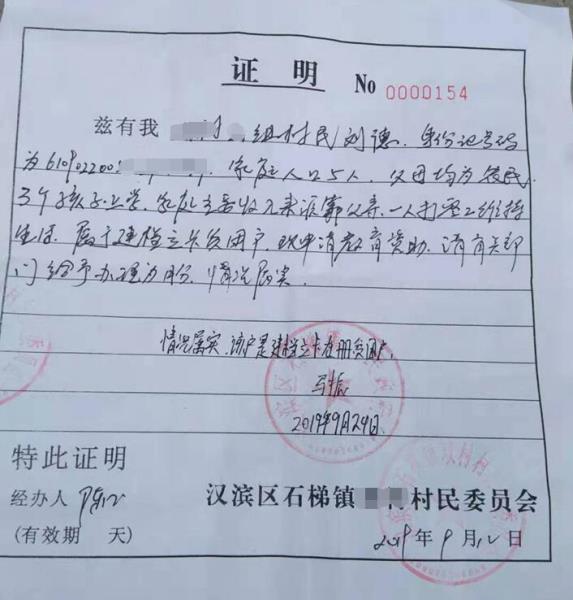 证 明 No 0000154
兹有我 组村民刘德，身份证号码
为6109022001 ，家庭人口5人，父母均为农民，
3个孩子上学，家庭主要收入来源靠父亲一人打零工维持
生活，属于建档立卡贫困户，现申请教育资助，请有关部
门给予办理为盼，情况属实。
情况属实，该户是建档立卡在册贫困户。
2019年9月24日
特此证明
经办人
(有效期 天)
汉滨区石梯镇 村民委员会
2019年9月12日